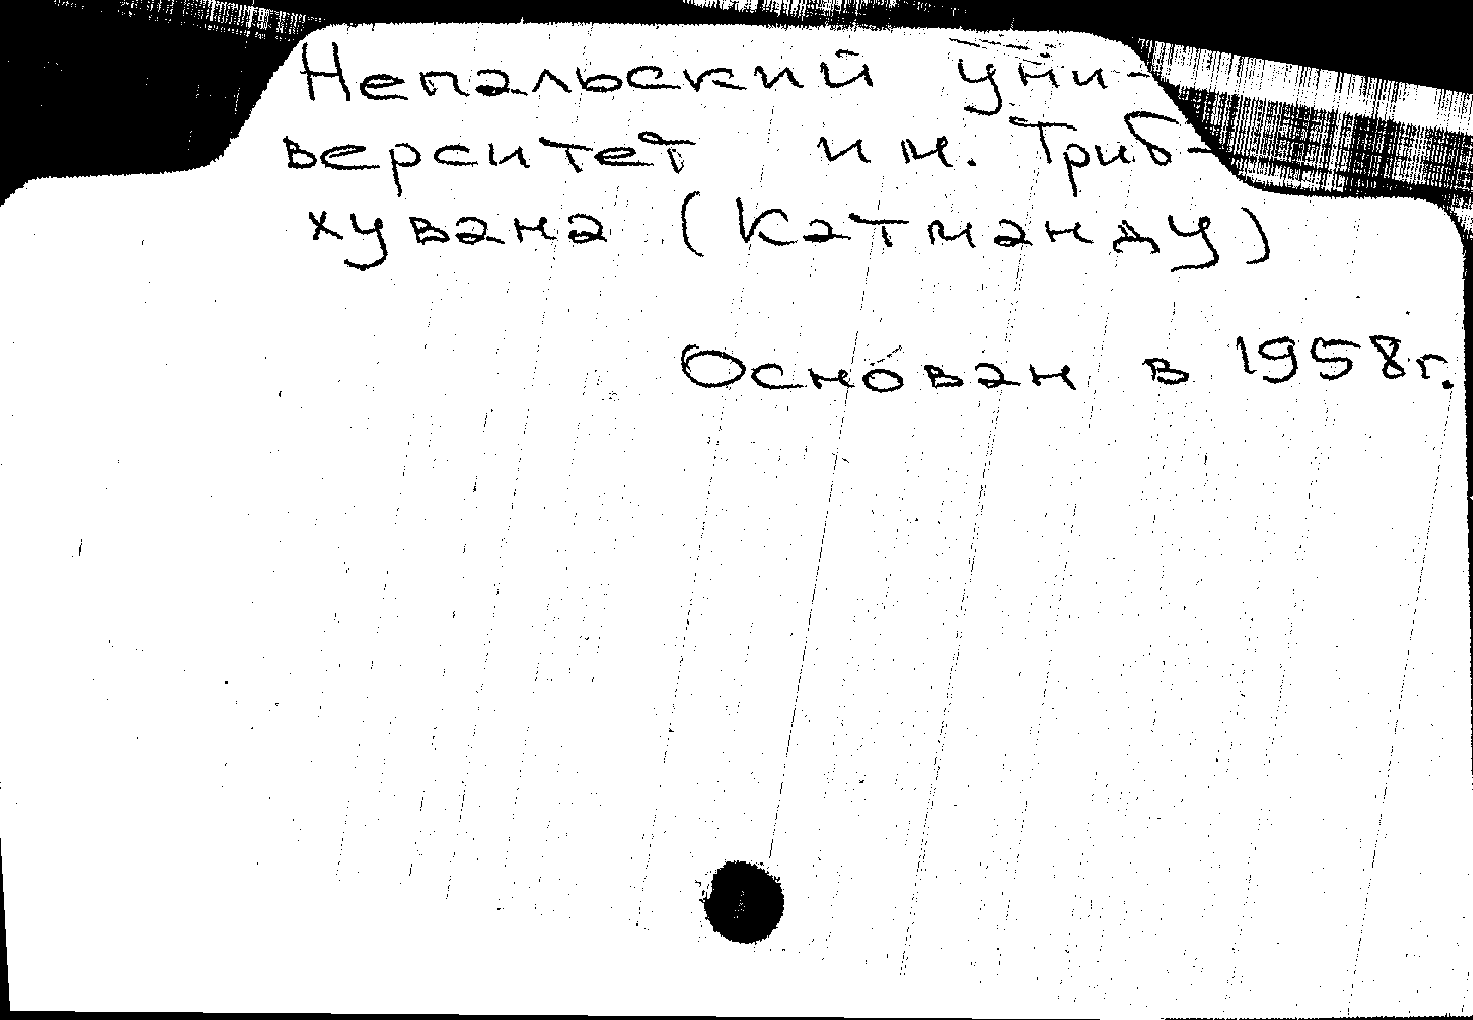 Непальский уни-
верситет им. Триб-
хувана (Катманду)
Осно́ван в 1958г.